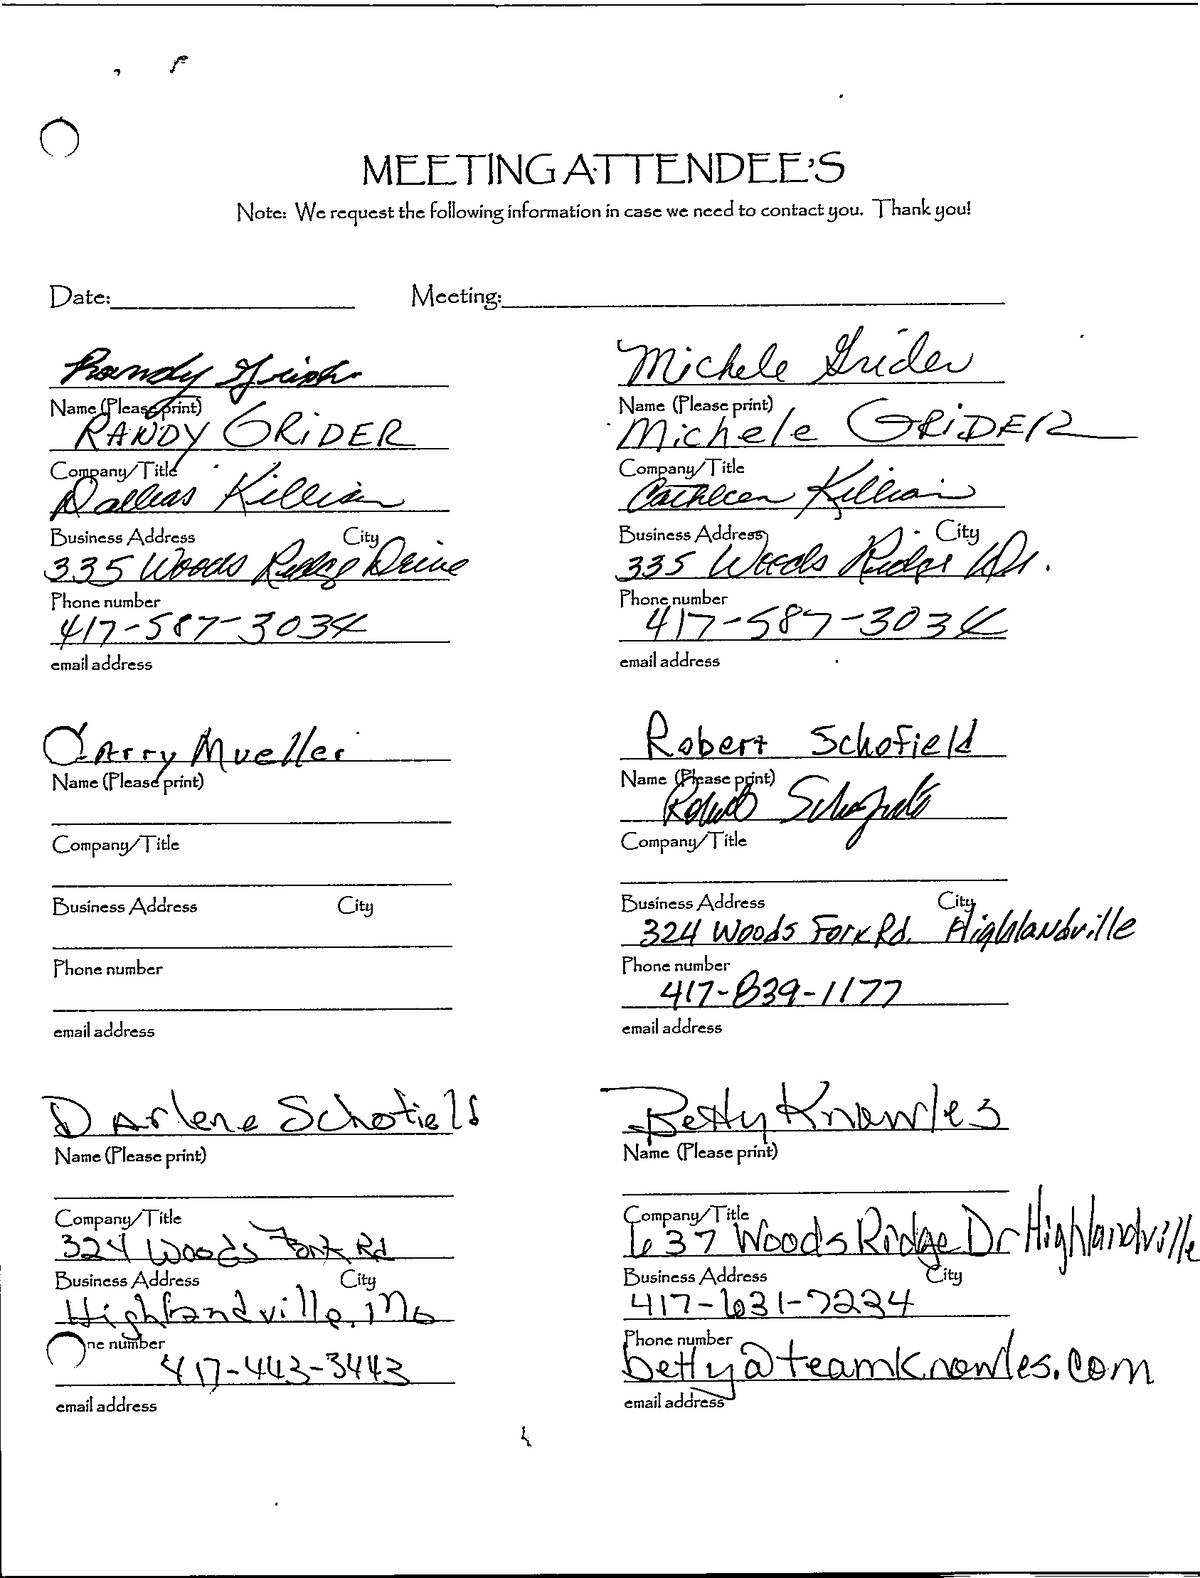 MEETING ATTENDEE'S
Note: We request the following information in case we need to contact you. Thank you!
Date: Meeting:
Randy Grider
Name (Please print)
RANDY GRIDER
Company/Title
Dallas Killian
Business Address City
335 Woods Ridge Drive
Phone number
417-587-3034
email address
Michele Grider
Name (Please print)
Michele GRIDER
Company/Title
Cathleen Killian
Business Address City
335 Woods Ridge Dr.
Phone number
417-587-3034
email address
Larry Mueller
Name (Please print)
Company/Title
Business Address City
Phone number
email address
Robert Schofield
Name (Please print)
Robert Schofield
Company/Title
Business Address City
324 Woods Fork Rd. Highlandville
Phone number
417-839-1177
email address
Darlene Schofield
Name (Please print)
Company/Title
324 Woods Fork Rd
Business Address City
Highlandville, Mo
ne number
417-443-3443
email address
Betty Knowles
Name (Please print)
Company/Title
637 Woods Ridge Dr Highlandville
Business Address City
417-631-7234
Phone number
betty@teamknowles.com
email address